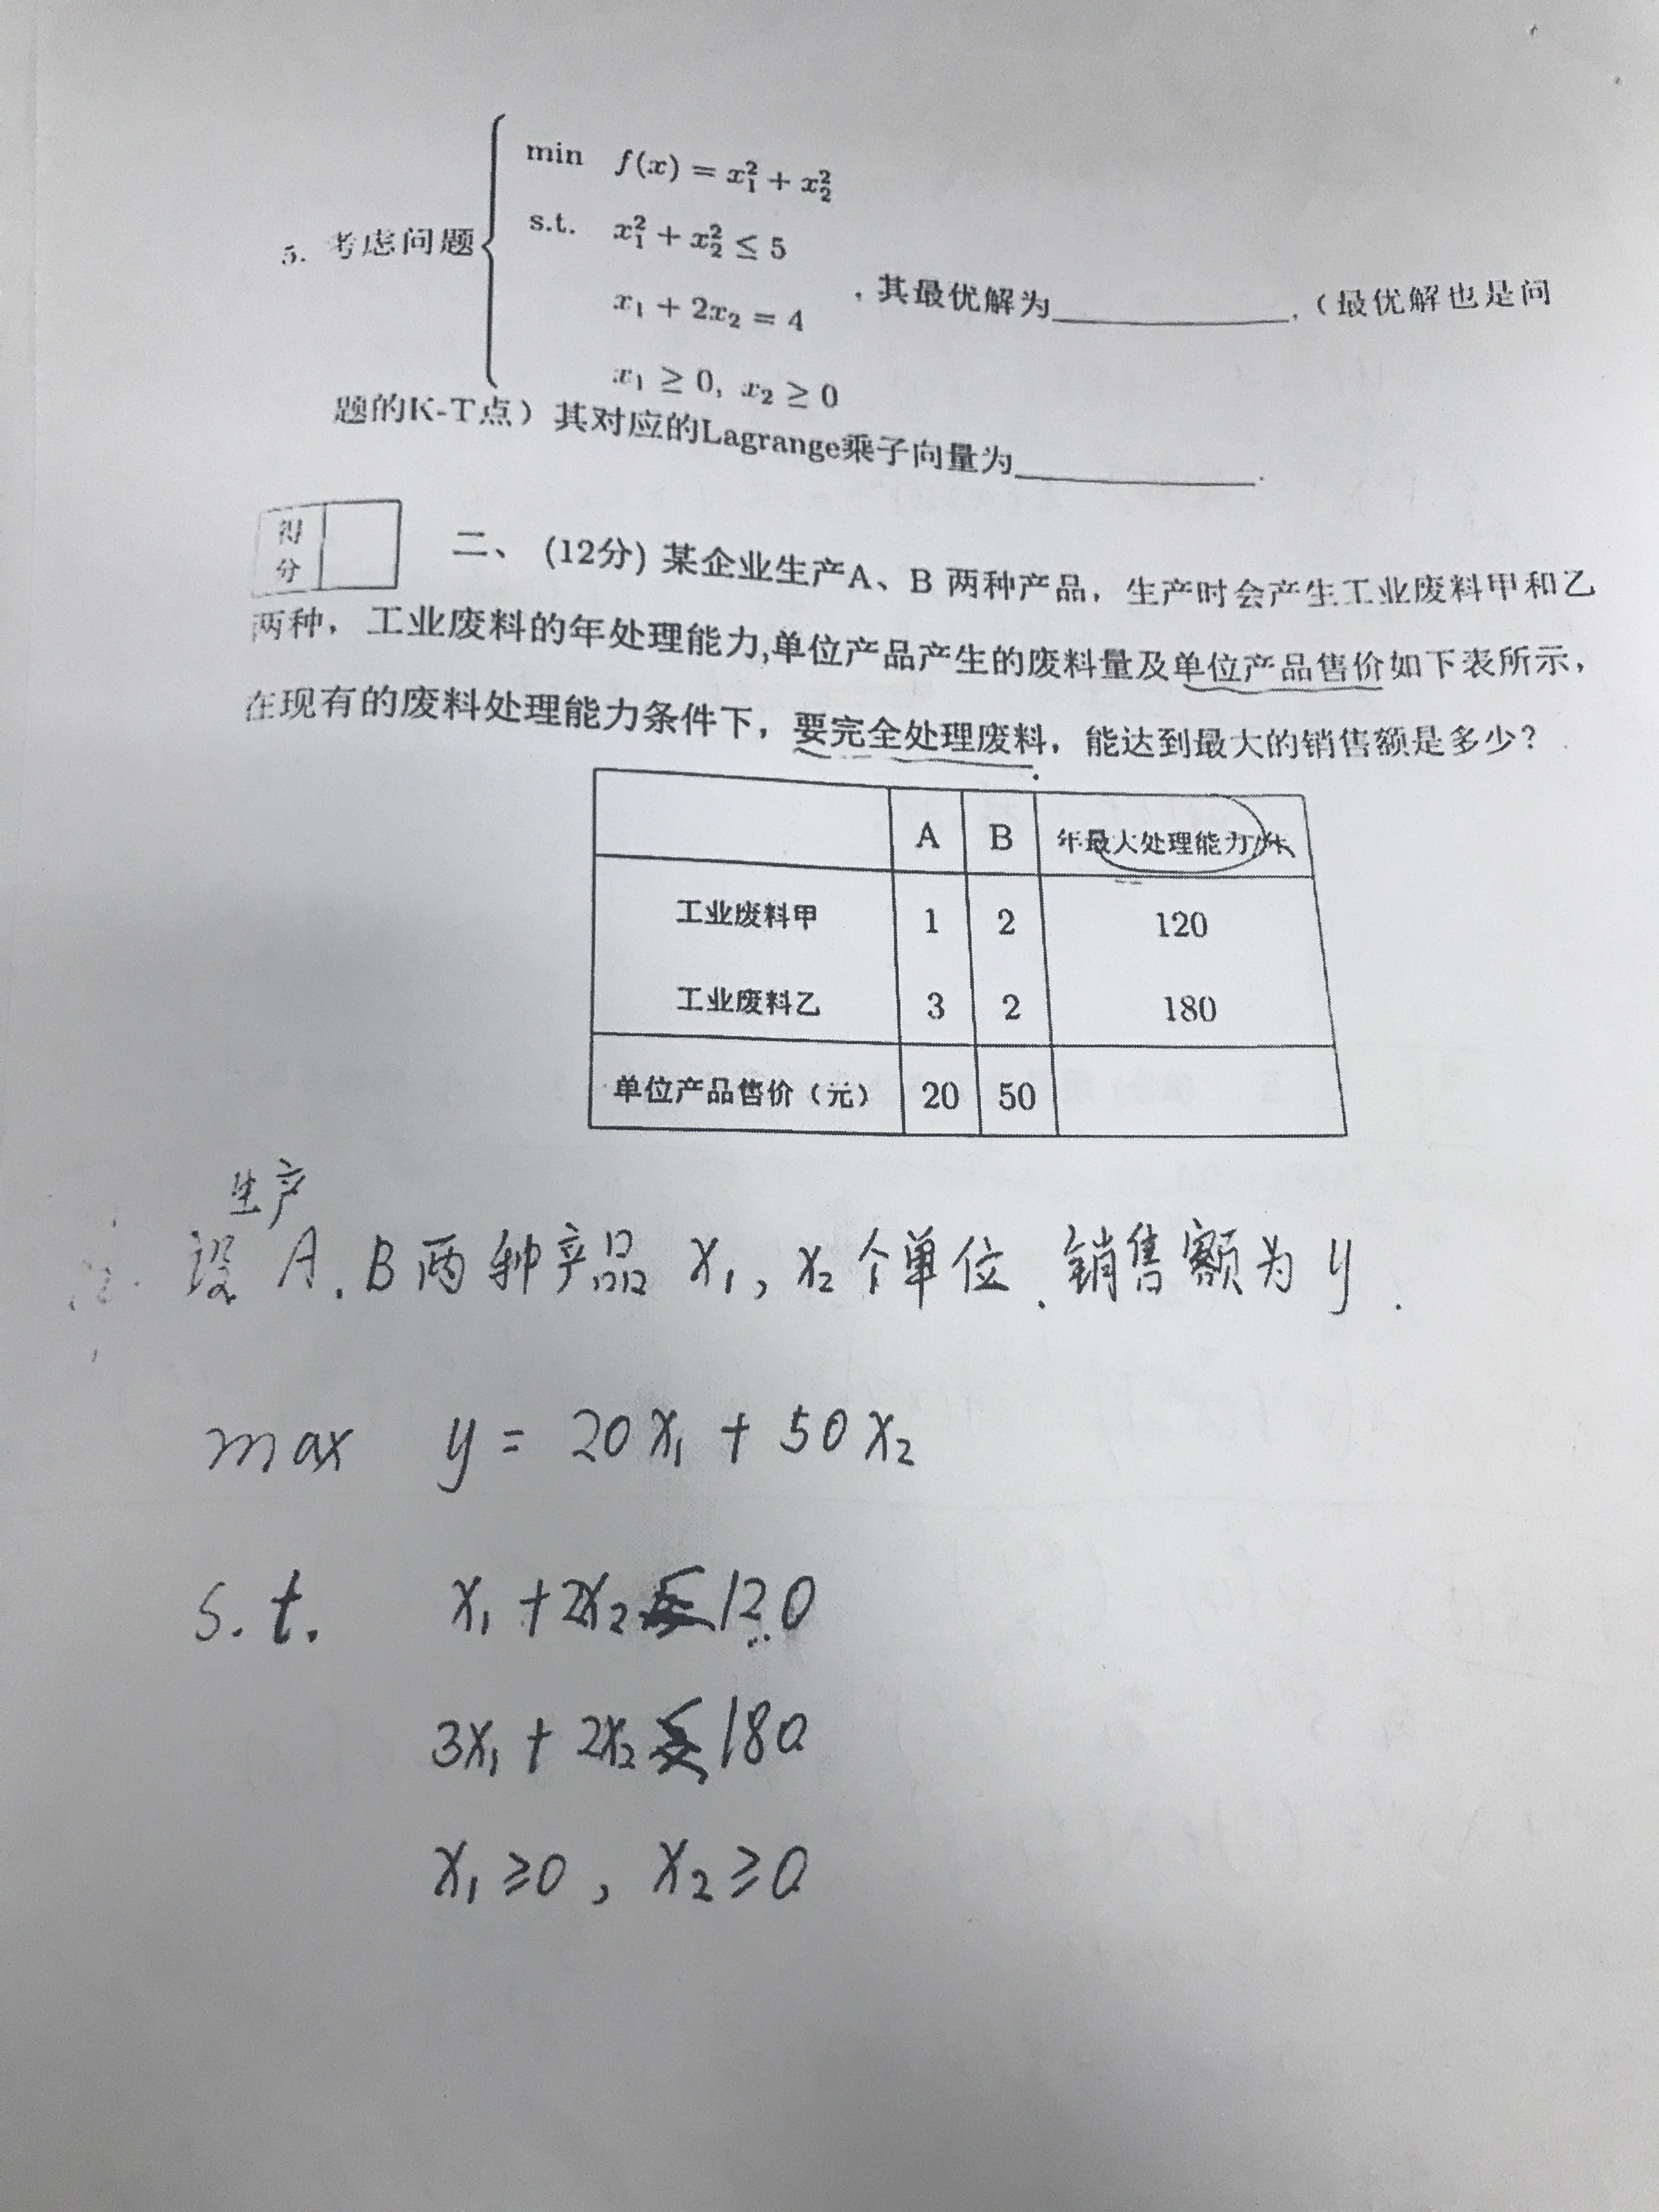 min f(x) = x₁² + x₂²
s.t. x₁² + x₂² ≤ 5
5. 考虑问题 ，其最优解为____________.（最优解也是问
x₁ + 2x₂ = 4
x₁ ≥ 0, x₂ ≥ 0
题的K-T点）其对应的Lagrange乘子向量为____________.
得分
二、 (12分) 某企业生产A、B 两种产品，生产时会产生工业废料甲和乙
两种，工业废料的年处理能力,单位产品产生的废料量及单位产品售价如下表所示，
在现有的废料处理能力条件下，要完全处理废料，能达到最大的销售额是多少？
A B 年最大处理能力
工业废料甲 1 2 120
工业废料乙 3 2 180
单位产品售价（元） 20 50
生产
设 A.B两种产品 x₁, x₂个单位.销售额为y.
max y = 20x₁ + 50x₂
s.t. x₁ + 2x₂ 120
3x₁ + 2x₂ 180
x₁ ≥ 0, x₂ ≥ 0